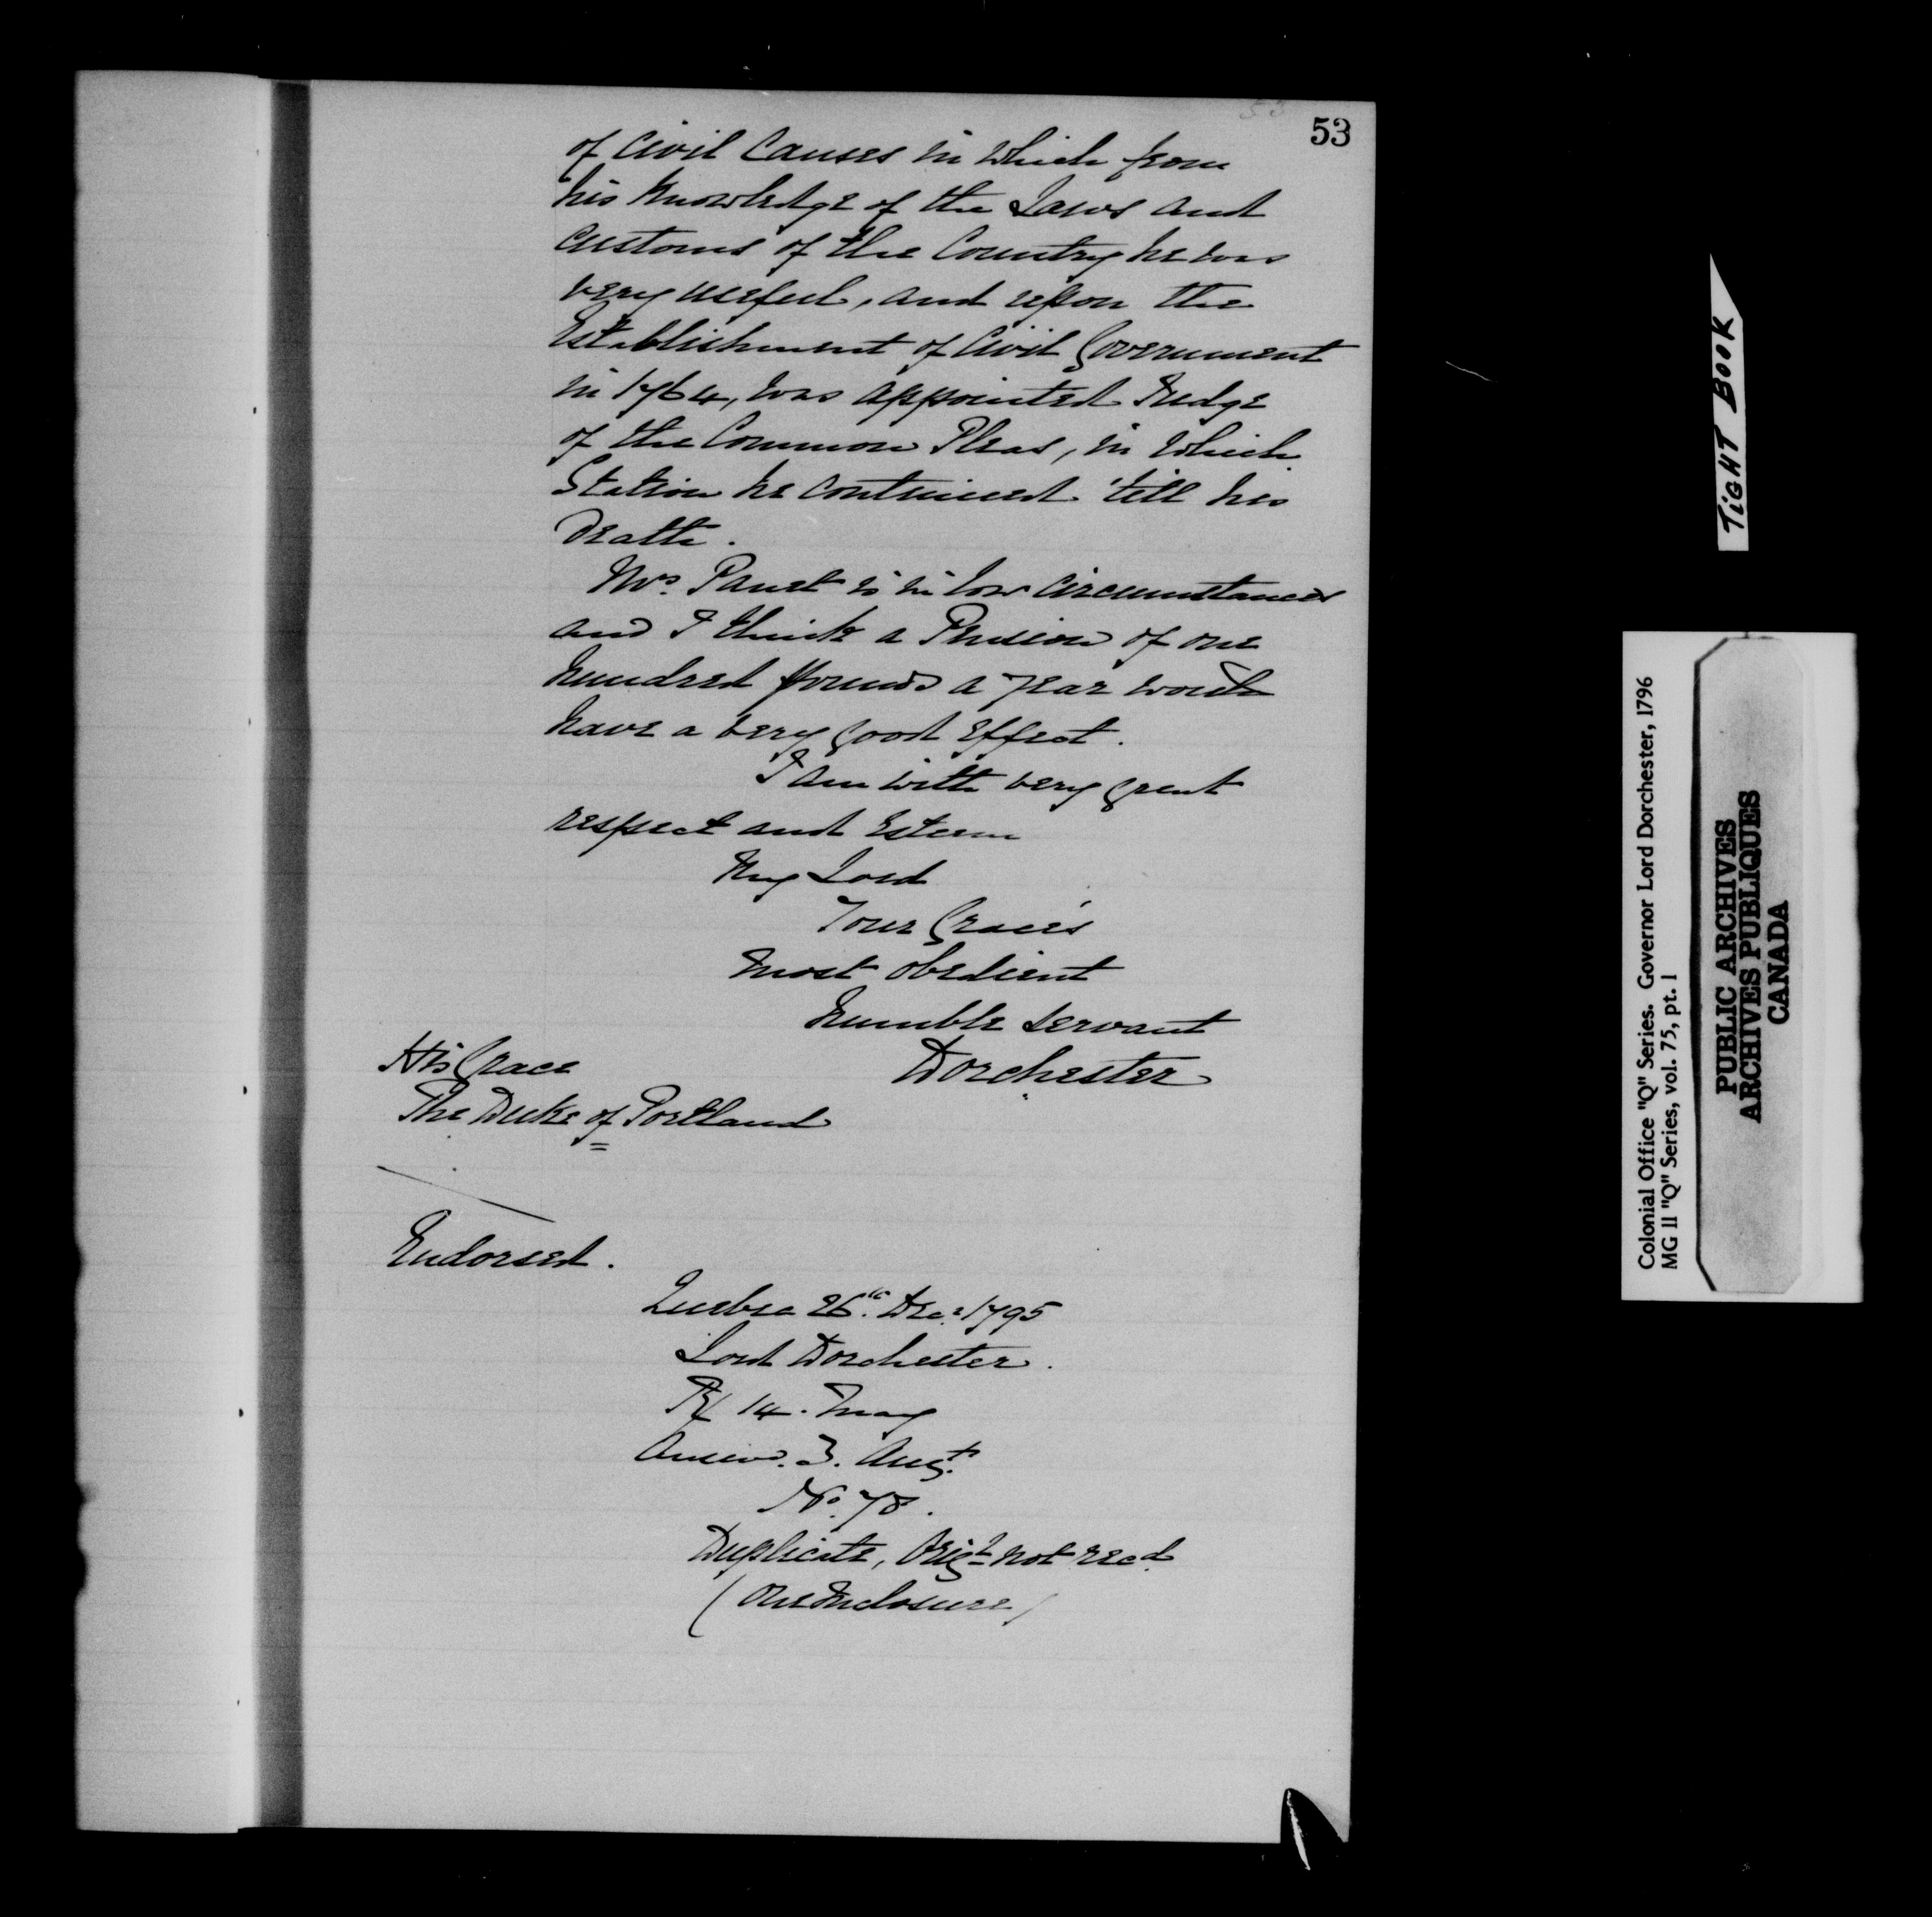 53
of Civil Causes in which from
his Knowledge of the Laws and
Customs of the Country he was
very useful, and upon the
Establishment of Civil Government
in 1764, was appointed Judge
of the Common Pleas, in which
Station he continued 'till his
Death.
Mrs. Panet is in low circumstances
and I think a Pension of one
hundred pounds a year would
have a very good effect.
I am with very great
respect and Esteem
My Lord
Your Grace's
most obedient
humble servant
Dorchester
His Grace
The Duke of Portland
Endorsed.
Quebec 26th. Dec. 1795
Lord Dorchester.
R/ 14. May
Answd. 3. Augt.
No. 78.
Duplicate, Origl. not recd.
(One Inclosure)
TIGHT BOOK
Colonial Office "Q" Series. Governor Lord Dorchester, 1796
MG 11 "Q" Series, vol. 75, pt. 1
PUBLIC ARCHIVES
ARCHIVES PUBLIQUES
CANADA